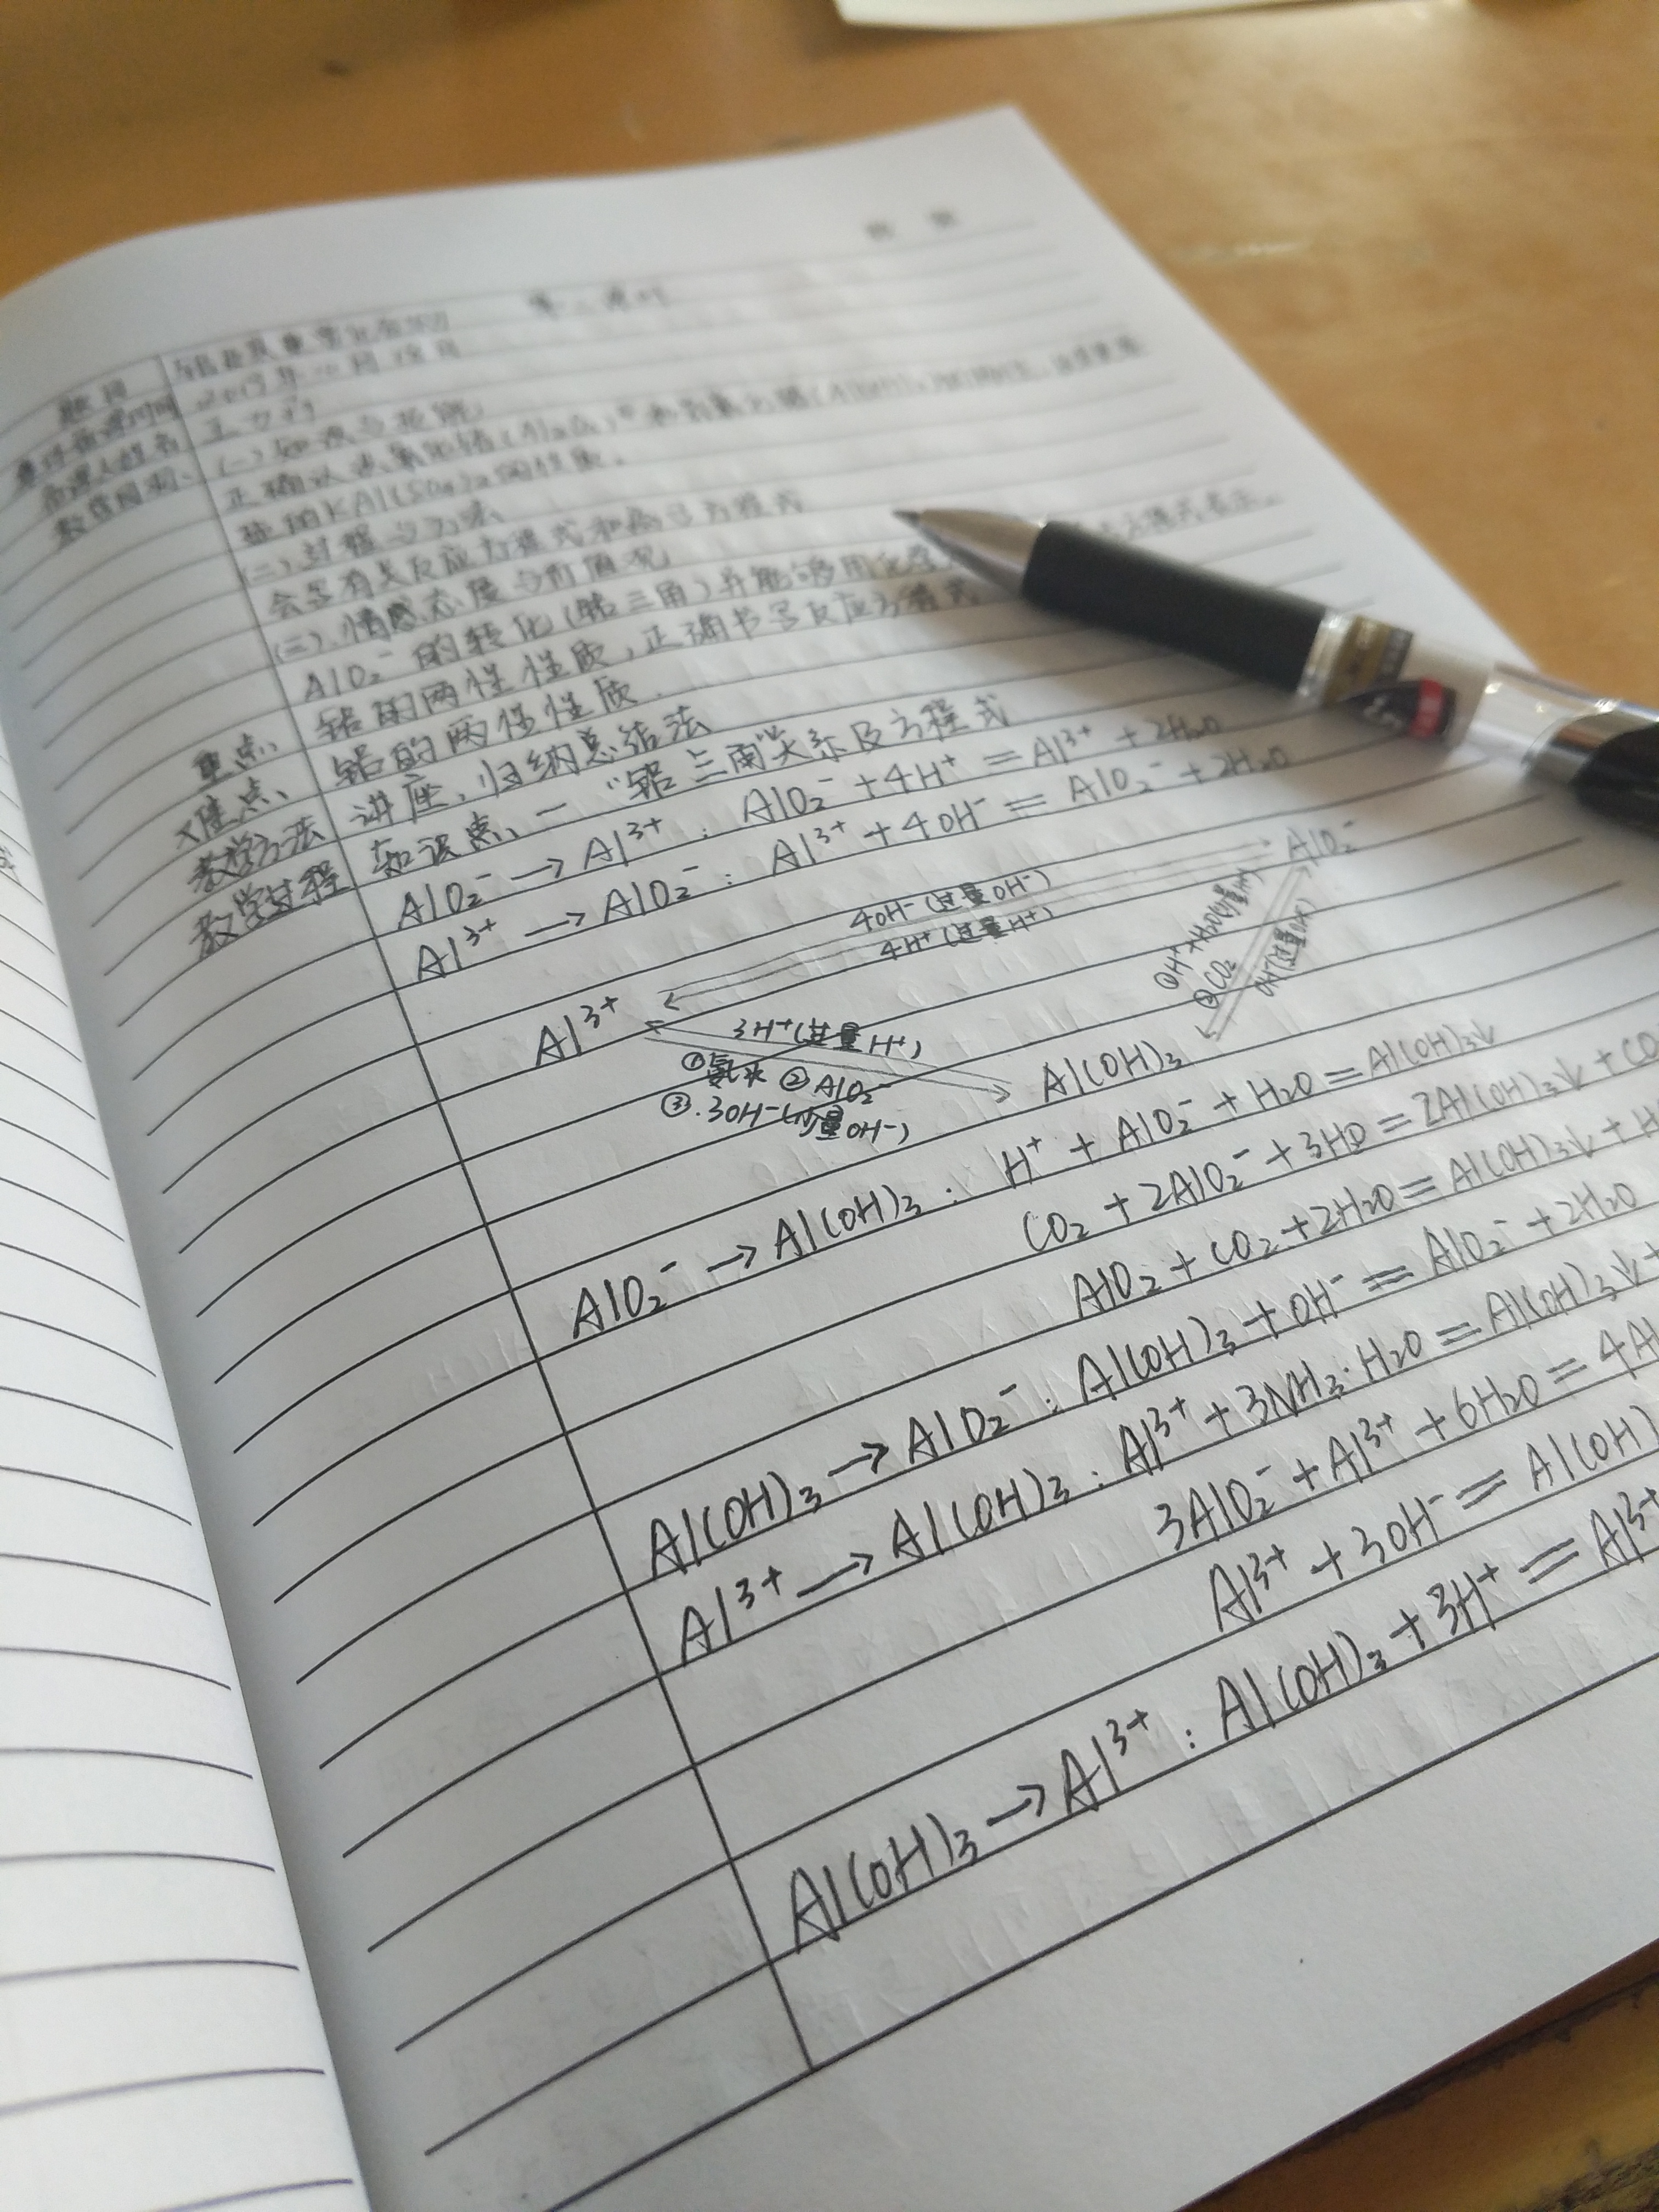 题目 铝及其重要化合物 第二课时
集体备课时间 2017年
备课人姓名 王
教学目标、 (一)知识与技能:
正确认识氧化铝(Al₂O₃)和氢氧化铝(Al(OH)₃)的两性,
盐的KAl(SO₄)₂的性质.
(二)过程与方法
会写有关反应方程式和离子方程式
(三).情感态度与价值观
AlO₂⁻的转化(铝三角)并能够用化学 方程式表示.
重点、 铝的两性性质,正确书写反应方程式
难点、 铝的两性性质.
教学方法 讲座,归纳总结法
教学过程 知识点一 "铝三角"关系及方程式
AlO₂⁻ → Al³⁺ : AlO₂⁻ + 4H⁺ = Al³⁺ + 2H₂O
Al³⁺ → AlO₂⁻ : Al³⁺ + 4OH⁻ = AlO₂⁻ + 2H₂O
AlO₂⁻
4OH⁻(过量OH⁻)
4H⁺(过量H⁺)
①H⁺+H₂O(少量H⁺)
②CO₂
OH⁻(过量OH⁻)
Al³⁺
3H⁺(过量H⁺)
①氨水 ②AlO₂⁻
③.3OH⁻(少量OH⁻)
Al(OH)₃
AlO₂⁻ → Al(OH)₃ : H⁺ + AlO₂⁻ + H₂O = Al(OH)₃↓
CO₂ + 2AlO₂⁻ + 3H₂O = 2Al(OH)₃↓ + CO
AlO₂⁻ + CO₂ + 2H₂O = Al(OH)₃↓ + H
Al(OH)₃ → AlO₂⁻ : Al(OH)₃ + OH⁻ = AlO₂⁻ + 2H₂O
Al³⁺ → Al(OH)₃ : Al³⁺ + 3NH₃·H₂O = Al(OH)₃↓ +
3AlO₂⁻ + Al³⁺ + 6H₂O = 4Al
Al³⁺ + 3OH⁻ = Al(OH)
Al(OH)₃ → Al³⁺ : Al(OH)₃ + 3H⁺ = Al³⁺